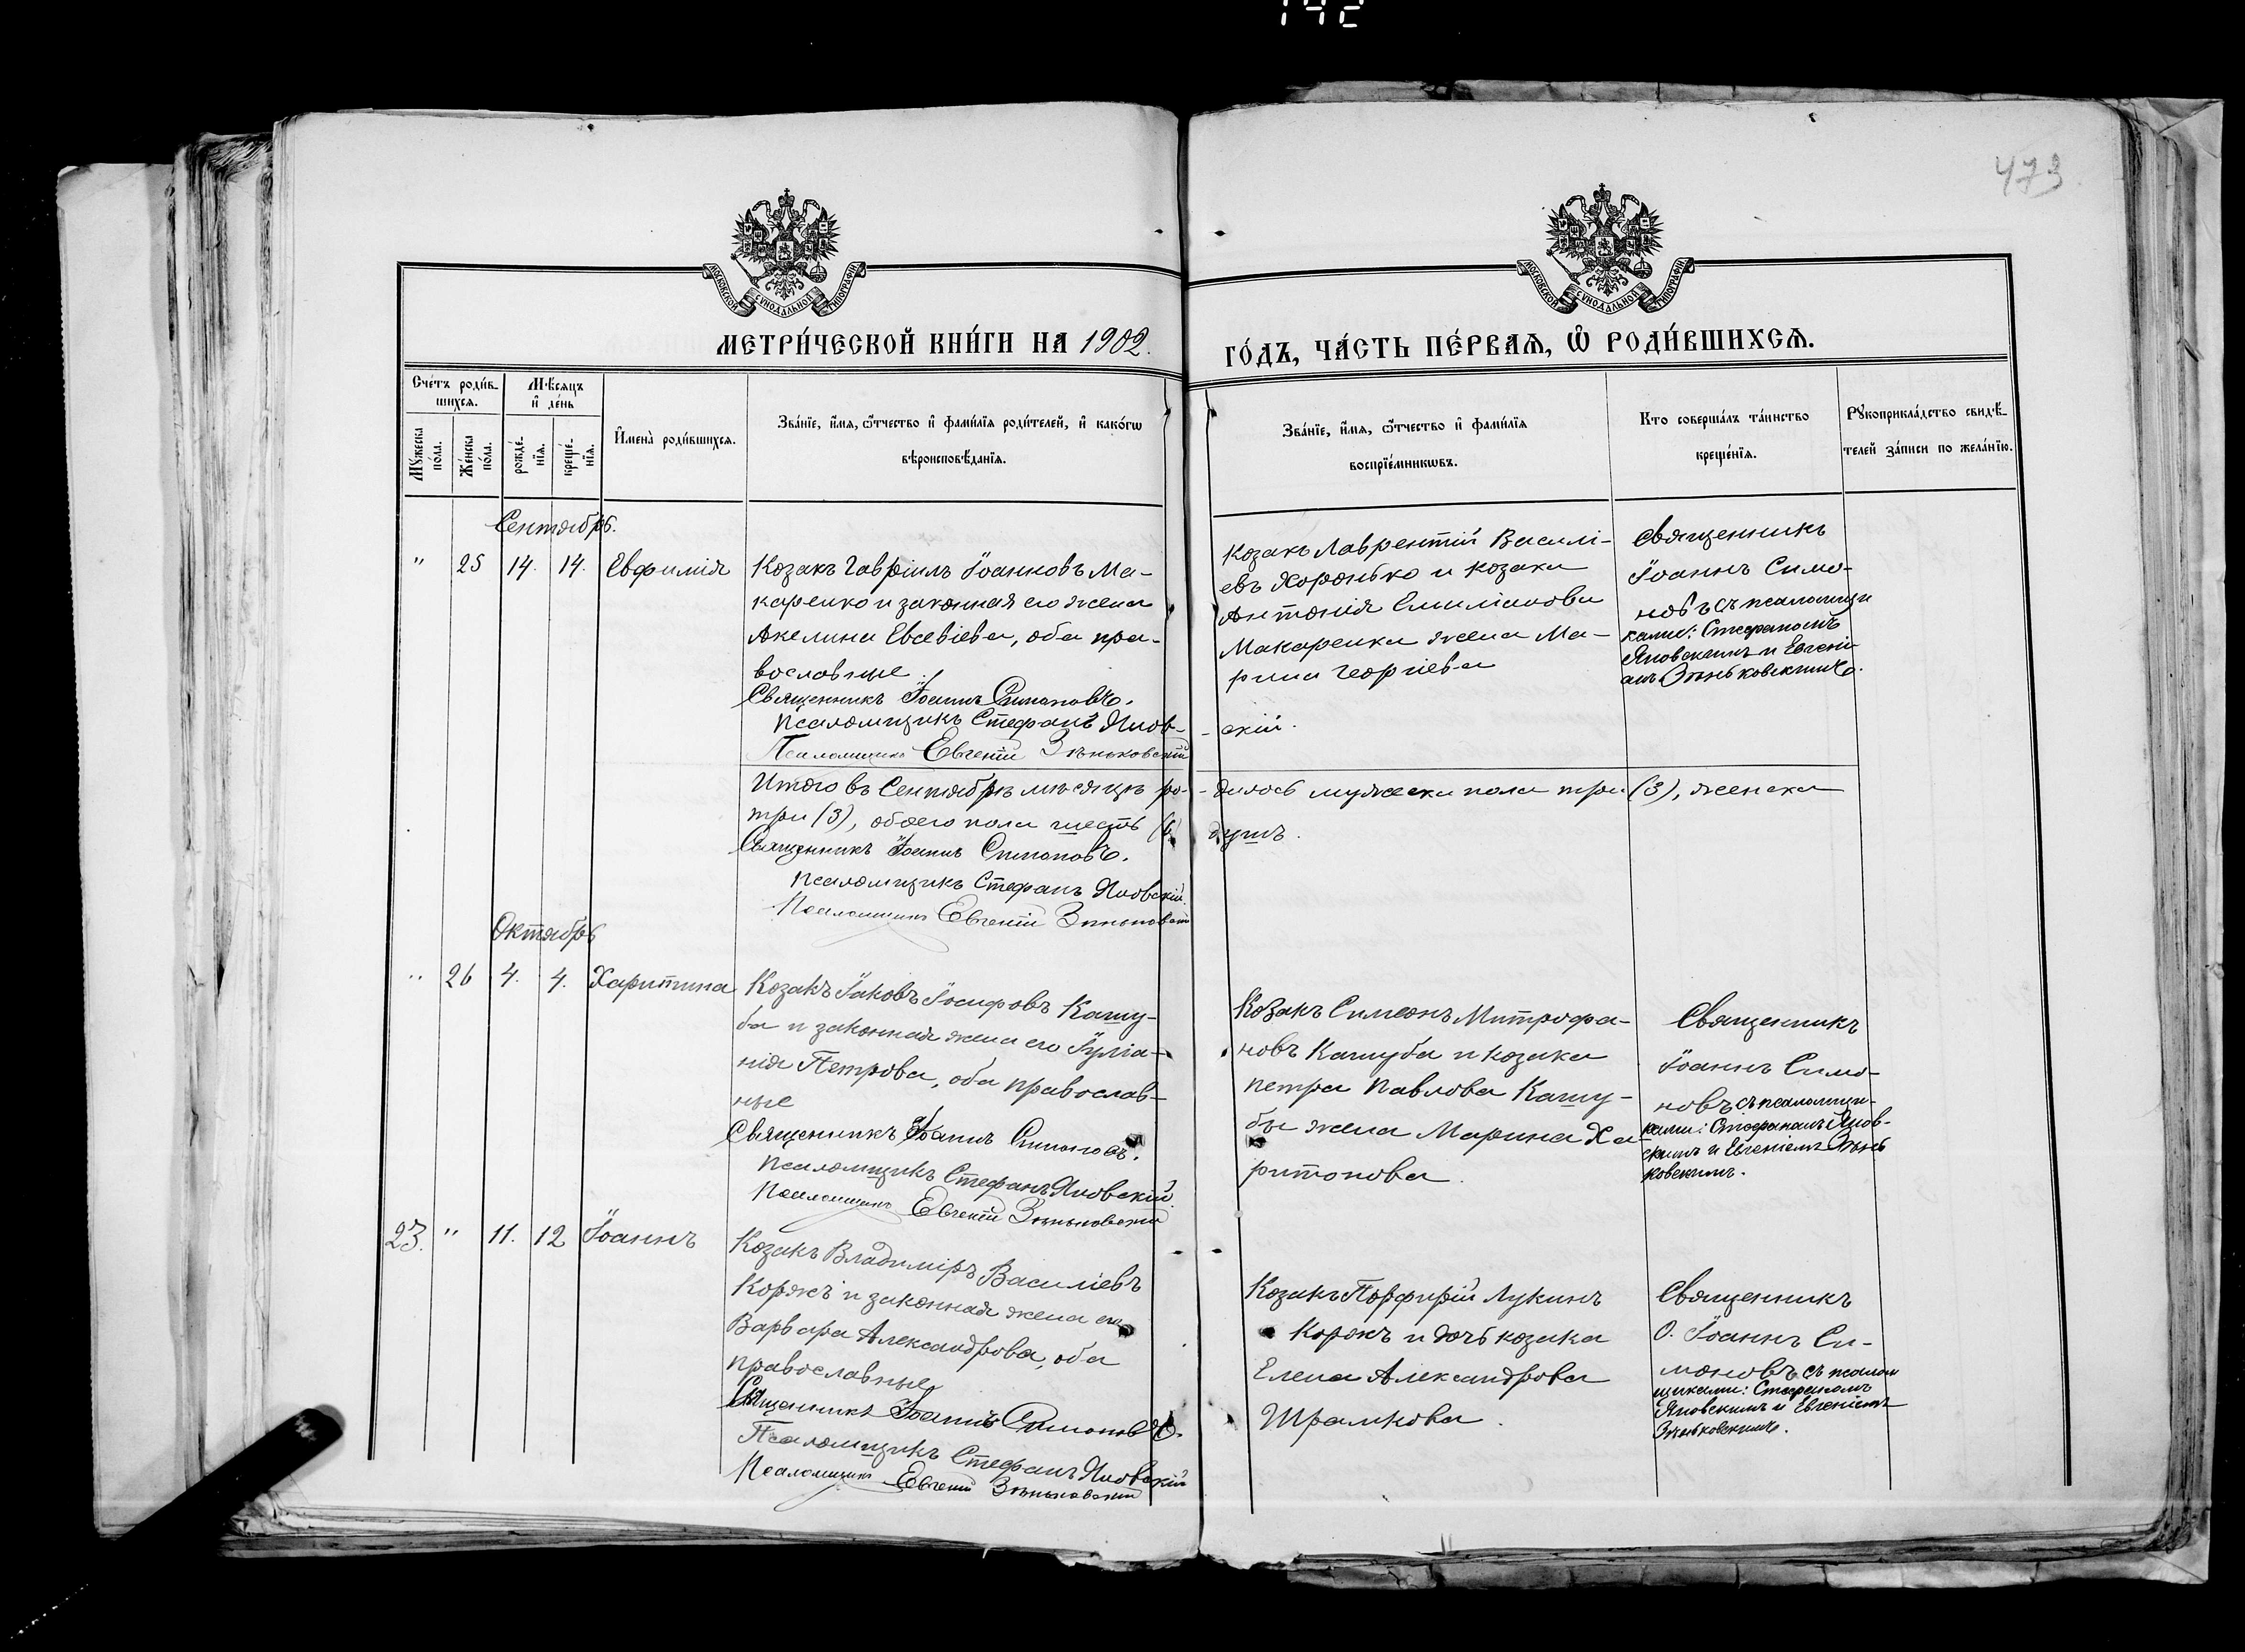 142
473
МОСКОВСКОЙ СѴНОДАЛЬНОЙ ТИПОГРАФІИ
МОСКОВСКОЙ СѴНОДАЛЬНОЙ ТИПОГРАФІИ
МЕТРИ́ЧЕСКОЙ КНИ́ГИ НА 1902.
ГО́ДЪ, ЧА́СТЬ ПЕ́РВАѦ, Ѽ РОДИ́ВШИХСѦ.
Счетъ роди́в-
шихсѧ.
Мѣсяцъ
и҆ де́нь
Мꙋжеска
по́ла.
Же́нска
по́ла.
рожде́-
нїѧ.
креще́-
нїѧ.
И҆мена̀ роди́вшихсѧ.
Зва́нїе, и҆́мѧ, ѻ҆́тчество и҆ фами́лїѧ роди́телей, и҆ како́гѡ
вѣроисповѣ́данїѧ.
Зва́нїе, и҆́мѧ, ѻ҆́тчество и҆ фами́лїѧ
воспрїе́мникѡвъ.
Кто соверша́лъ та́инство
креще́нїѧ.
Рꙋкоприкла́дство свидѣ́-
телей за́писи по жела́нїю.
Сентябрь.
" 25 14. 14. Евфимія
Козакъ Гавріилъ Іоанновъ Ма-
каренко и законная его жена
Акелина Евсевіева, оба пра-
вославные.
Священникъ Іоаннъ Симоновъ.
Псаломщикъ Стефанъ Янов-
-скій.
Псаломщикъ Евгеній Зѣньковскій
Козакъ Лаврентій Василі-
евъ Хоронько и козака
Антонія Емиліанова
Макаренка жена Ма-
рина Георгіева
Священникъ
Іоаннъ Симо-
новъ съ псаломщи
ками: Стефаномъ
Яновскимъ и Евгені-
емъ Зѣньковскимъ.
Итого въ Сентябрѣ мѣсяцѣ ро-
-дилось мужеска пола три (3), женска
три (3), обоего пола шесть (6)
душъ.
Священникъ Іоаннъ Симоновъ.
Псаломщикъ Стефанъ Яновскій.
Псаломщикъ Евгеній Зѣньковскій
Октябрь
" 26 4. 4. Харитина
Козакъ Іаковъ Іосифовъ Кашу-
ба и законная жена его Іуліа-
нія Петрова, оба православ-
ные
Священникъ Іоаннъ Симоновъ.
Псаломщикъ Стефанъ Яновскій.
Псаломщикъ Евгеній Зѣньковскій
Козакъ Симеонъ Митрофа-
новъ Кашуба и козака
Петра Павлова Кашу-
бы жена Марина Ха-
ритонова.
Священникъ
Іоаннъ Симо-
новъ съ псаломщи-
ками: Стефаномъ Янов-
скимъ и Евгеніемъ Зѣнь
ковскимъ.
23. " 11. 12 Іоаннъ
Козакъ Владиміръ Василіевъ
Коржъ и законная жена его
Варвара Александрова, оба
православные
Священникъ Іоаннъ Симоновъ.
Псаломщикъ Стефанъ Яновскій
Псаломщикъ Евгеній Зѣньковскій
Козакъ Порфирій Лукинъ
Коржъ и дочь козака
Елена Александрова
Шрамкова.
Священникъ
О. Іоаннъ Си-
моновъ съ псалом
щиками: Стефаномъ
Яновскимъ и Евгеніемъ
Зѣньковскимъ.